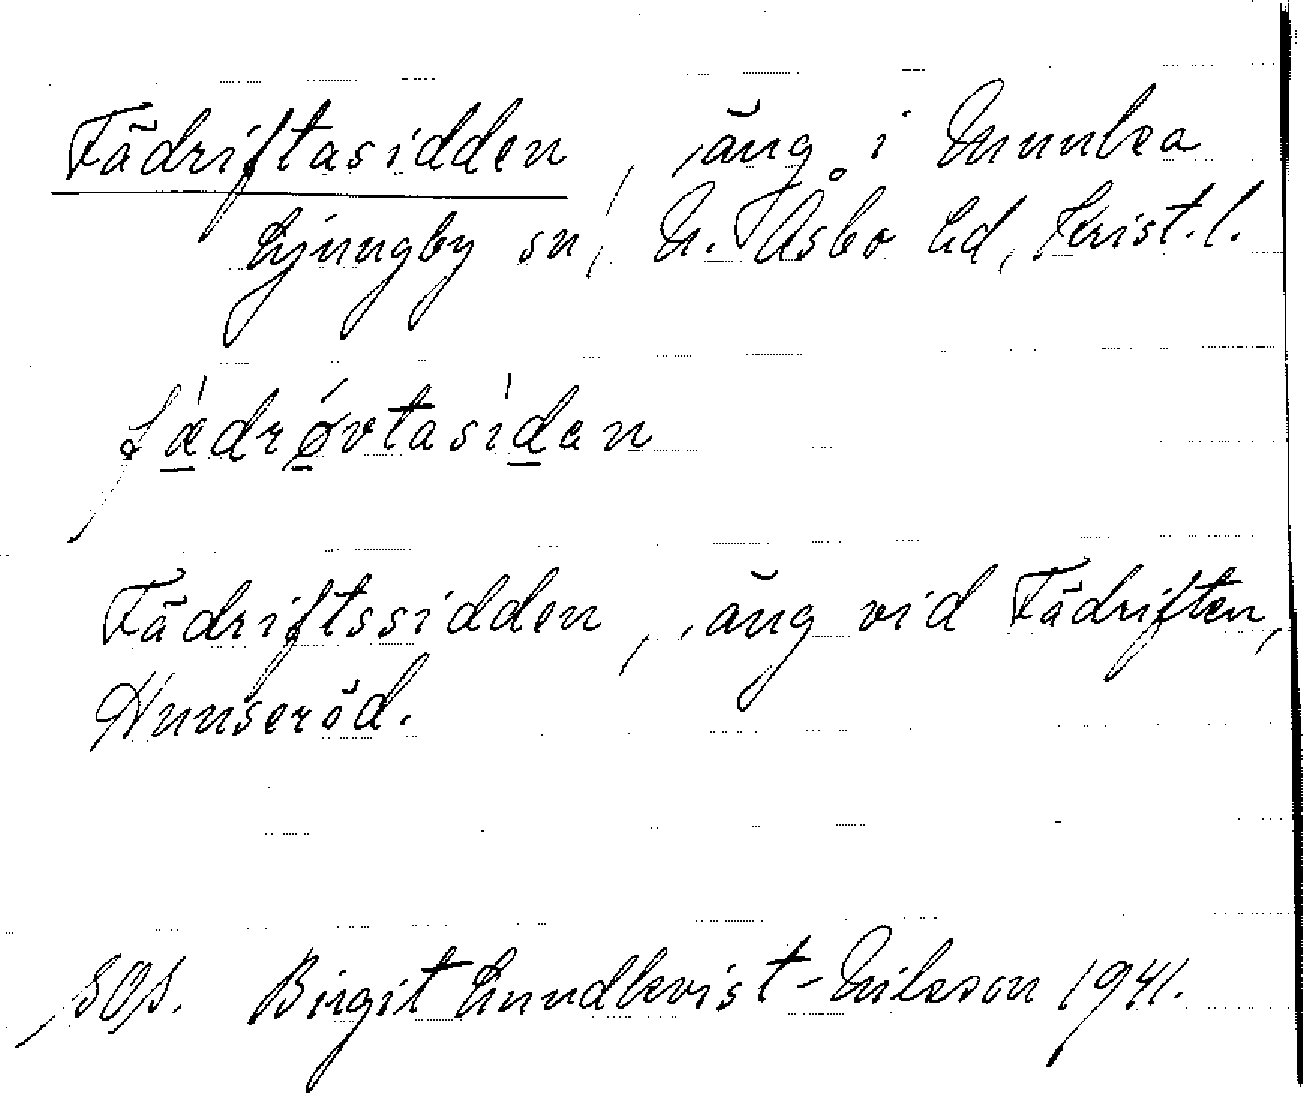 Fädriftasidden, äng i Munka
Ljungby sn, N. Åsbo hd, Krist. l.
fædrøvtasidan
Fädriftssidden, äng vid Fädriften,
Hunseröd.
SOS. Birgit Lundkvist-Nilsson 1941.